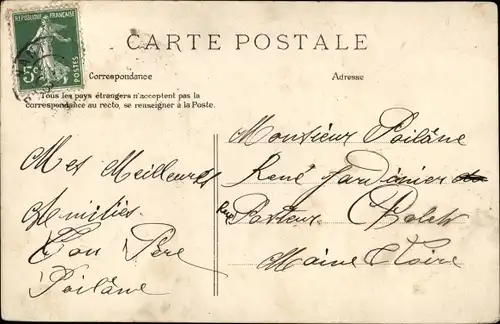 REPUBLIQUE FRANÇAISE
5c POSTES
CARTE POSTALE
Correspondance
Adresse
Tous les pays étrangers n'acceptent pas la
correspondance au recto, se renseigner à la Poste.
Mes Meilleures
Amitiés
Ton Père
Poilâne
Monsieur Poilâne
René Jardinier
Rue
Pasteur Cholet
Maine & Loire